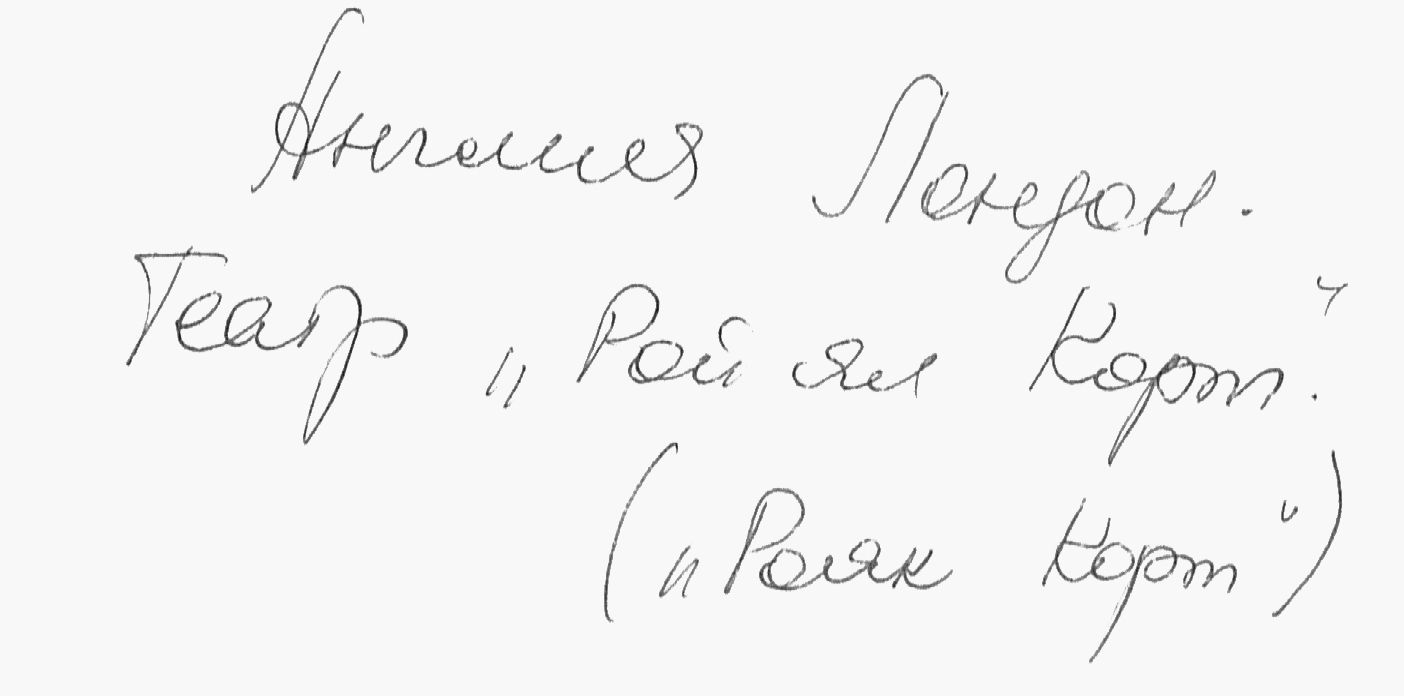 Англия Лондон.
Театр "Ройял Корт".
("Рояк Корт")